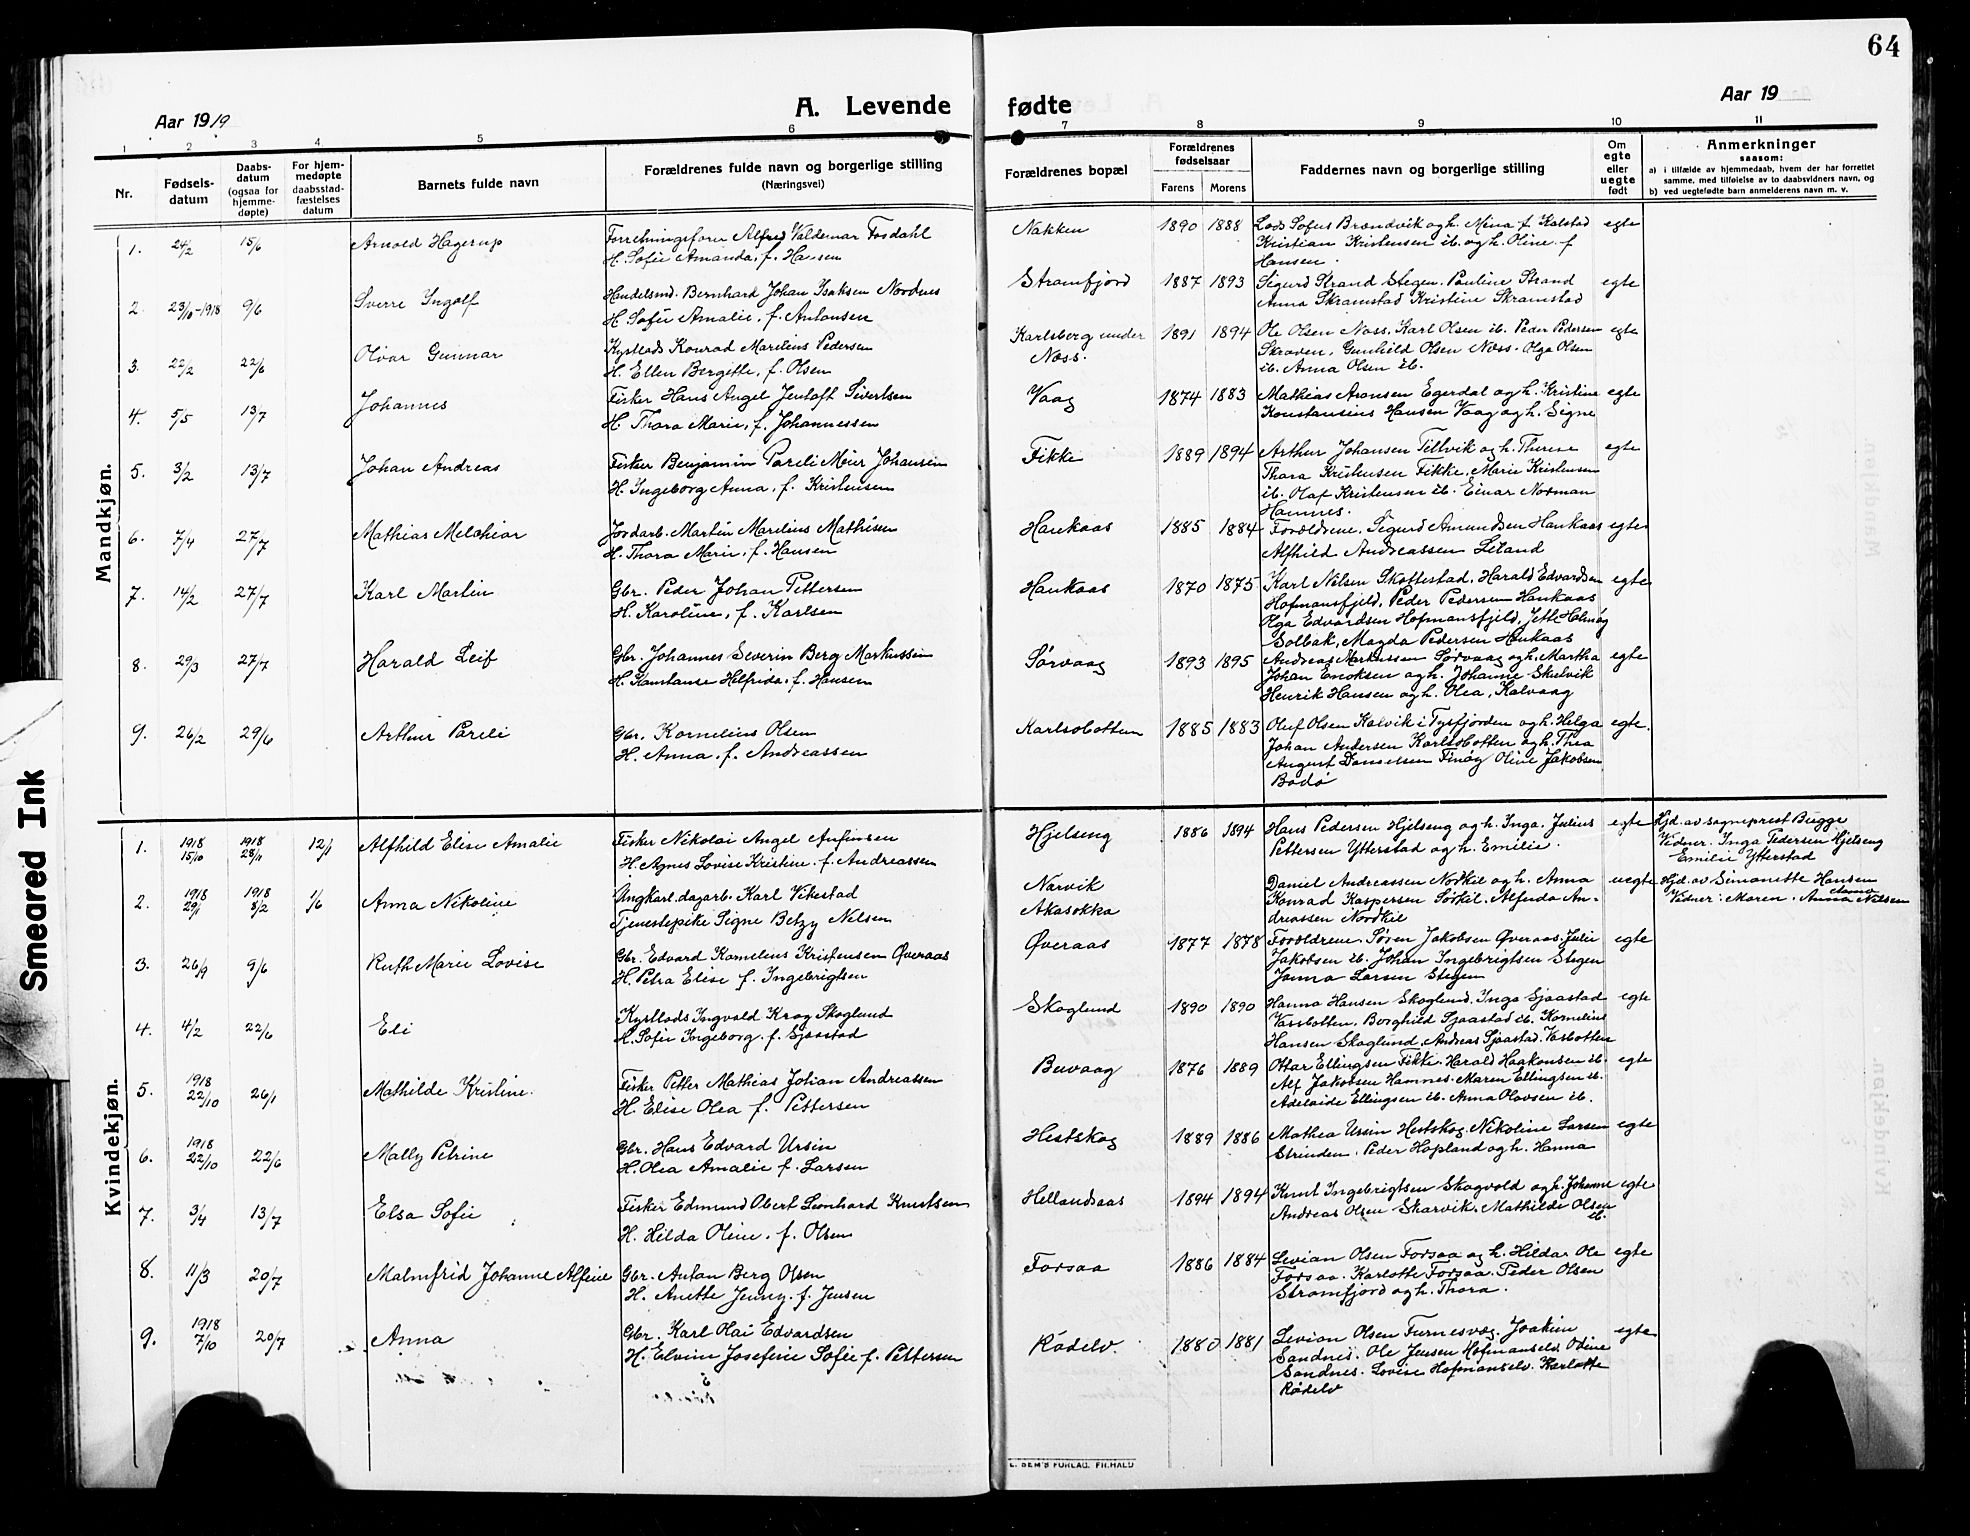 64
Aar 1919
A. Levende fødte
Aar 19
1 2 3 4 5 6 7 8 9 10 11
Nr.
Fødsels-
datum
Daabs-
datum
(ogsaa for
hjemme-
døpte)
For hjem-
medøpte
daabsstad-
fæstelses
datum
Barnets fulde navn
Forældrenes fulde navn og borgerlige stilling
(Næringsvei)
Forældrenes bopæl
Forældrenes
fødselsaar
Farens Morens
Faddernes navn og borgerlige stilling
Om
egte
eller
uegte
født
Anmerkninger
saasom:
a) i tilfælde av hjemmedaab, hvem der har forrettet
samme, med tilføielse av to daabsvidners navn, og
b) ved uegtefødte barn anmelderens navn m. v.
Mandkjøn.
1. 24/2 15/6 Arnold Hagerup
Forretningsfører Alfred Valdemar Fosdahl
H. Sofie Amanda, f. Hansen
Nakken 1890 1888
Lods Sofus Brændvik og h. Mina f. Kalstad
Kristian Kristensen ib. og h. Oline f.
Hansen.
egte
2. 23/10-1918 9/6 Sverre Ingolf
Handelsmd. Bernhard Johan Isaksen Nordnes
H. Sofie Amalie, f. Antonsen
Strømfjord 1887 1893
Sigurd Strand Stegen. Pauline Strand
Anna Skramstad Kristine Skramstad
egte
3. 22/2 22/6 Olvar Gunnar
Kystlods Konrad Marelius Pedersen
H. Ellen Bergette, f. Olsen
Karlsberg under
Næss.
1891 1894
Ole Olsen Næss. Karl Olsen ib. Peder Pedersen
Skroven. Gunhild Olsen Næss. Olga Olsen
ib. Anna Olsen ib.
egte
4. 5/5 13/7 Johannes
Fisker Hans Angel Jentoft Sivertsen
H. Thora Marie, f. Johannessen
Vaag 1874 1883
Mathias Aronsen Egerdal og h. Kristine
Konstansius Hansen Vaag og h. Signe
egte
5. 3/2 13/7 Johan Andreas
Fisker Benjamin Pareli Meier Johansen
H. Ingeborg Anna, f. Kristensen
Fikke 1889 1894
Arthur Johansen Tellvik og h. Therese
Thora Kristensen Fikke. Marie Kristensen
ib. Olaf Kristensen ib. Einar Norman
Hamnes.
egte
6. 7/4 27/7 Mathias Melchior
Jordarb. Martin Marelius Mathisen
H. Thora Marie, f. Hansen
Haukaas 1885 1884
Forældrene. Sigurd Amundsen Haukaas
Alfhild Andreassen Leland
egte
7. 14/2 27/7 Karl Martin
Gbr. Peder Johan Pettersen
H. Karoline, f. Karlsen
Haukaas 1870 1875
Karl Nilsen Skottestad. Harald Edvardsen
Hofmansfjeld. Peder Pedersen Haukaas
Olga Edvardsen Hofmansfjeld, Jette Holmøy
Solbak, Magda Pedersen Haukaas
egte
8. 29/3 27/7 Harald Leif
Gbr. Johannes Severin Berg Markussen
H. Konstanse Helfrida, f. Hansen
Sørvaag 1893 1895
Andreas Markussen Sørvaag og h. Martha
Johan Enoksen og h. Johanne Skulvik
Henrik Hansen og h. Olea, Kalvaag
egte
9. 26/2 29/6 Arthur Pareli
Gbr. Kornelius Olsen
H. Anna, f. Andreassen
Karlsobotten 1885 1883
Oluf Olsen Kalvik i Tysfjorden og h. Helga
Johan Andersen Karlsøbotten og h. Thea
August Danielsen Finøy Oline Jakobsen
Bodø
egte.
Kvindekjøn.
1. 1918 15/10 1918 28/11 12/1 Alfhild Elise Amalie
Fisker Nikolai Angel Anfinsen
H. Agnes Lovise Kristine, f. Andreassen
Hjelseng 1886 1894
Hans Pedersen Hjelseng og h. Inga. Julius
Pettersen Ytterstad og h. Emilie.
egte
Hjd. av sogneprest Bugge
Vidner. Inga Pedersen Hjelseng
Emilie Ytterstad
2. 1918 29/1 1918 8/2 1/6 Anna Nikoline
Ungkarl. dagarb. Karl Vikestad
Tjenestepike Signe Betzy Nelsen
Narvik
Akasokka
Daniel Andreassen Nordkil og h. Anna
Konrad Kaspersen Sørkil. Alfrida An-
dreassen Nordkil
uegte
Hjd. av Simonette Hansen
Vidner: Maren. Anna Nilsen
3. 26/9 9/6 Ruth Marie Lovise
Gbr. Edvard Kornelius Kristensen Øveraas
H. Petra Elise f. Ingebrigtsen
Øveraas 1877 1878
Forældrene. Søren Jakobsen Øveraas. Julie
Jakobsen ib. Johan Ingebrigtsen Stegen
Janna Larsen Stegen
egte
4. 4/2 22/6 Eli
Kystlods Ingvald Krog Skoglund
H. Sofie Ingeborg, f. Sjaastad
Skoglund 1890 1890
Hanna Hansen Skoglund. Inga Sjaastad
Vassbotten. Borghild Sjaastad ib. Kornelius
Hansen Skoglund. Andreas Sjaastad. Vasbotten
egte
5. 1918 22/10 26/1 Mathilde Kristine.
Fisker Petter Mathias Johan Andreassen
H. Elise Olea f. Pettersen
Buvaag 1876 1889
Ottar Ellingsen Fikke. Harald Haakonsen ib.
Alf Jakobsen Hamnes. Maren Ellingsen ib.
Adelaide Ellingsen ib. Anna Olavsen ib.
egte
6. 1918 22/10 22/6 Mally Petrine
Gbr. Hans Edvard Ursin
H. Olea Amalie f. Larsen
Hestskog 1889 1886
Mathea Ursin Hestskog. Nikoline Larsen
Strinden. Peder Hopland og h. Hanna
egte
7. 3/4 13/7 Elsa Sofie
Fisker Edmund Obert Leonhard Knutsen
H. Hilda Oline, f. Olsen
Hellandsaas 1894 1894
Knut Ingebrigtsen Skogvold og h. Johanne
Andreas Olsen Skarvik. Mathilde Olsen
ib.
egte
8. 11/3 20/7 Malmfrid Johanne Alfine
Gbr. Anton Berg Olsen
H. Anette Jenny. f. Jensen
Forsaa 1886 1884
Levian Olsen Forsaa og h. Hildar Ole
Forsaa. Karlotte Forsaa. Peder Olsen
Strømfjord og h. Thora.
egte
9. 1918 7/10 20/7 Anna
Gbr. Karl Hai Edvardsen
H. Elvine Josefine Sofie f. Pettersen
Rødelv 1880 1881
Levian Olsen Furnesvæg. Joakim
Sandnes. Ole Jensen Hofmanselv. Odine
Sandnes. Lovise Hofmanselv. Karlotte
Rødelv
egte
E. SEM'S FORLAG, FR.HALD
Smeared Ink